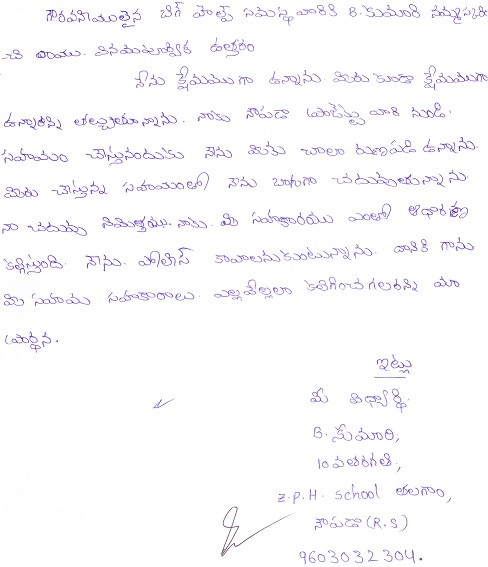 గౌరవనీయులైన బిగ్ హెల్ప్ సమస్త వారికి B. కుమారి నమస్కరించి
చి రాయు. వినయపూర్వక ఉత్తరం
నేను క్షేమముగా ఉన్నాను. మీరు కూడా క్షేమముగా
ఉన్నారని తలచుచున్నాను. నాకు నౌపడా ప్రాజెక్టు వారి నుండి.
సహాయం చేస్తునందుకు నేను మీకు చాలా రుణపడి ఉన్నాను.
మీరు చేస్తున్న సహాయంలో నేను బాగుగా చదువుతున్నాను.
నా చదువు నిమిత్తము. నాకు. మీ సహకారము ఎంతో ఆధారణ
కల్గిస్తుంది. నేను. పోలీస్ కావాలనుకుంటున్నాను. దానికి గాను
మీ సహాయ సహకారాలు. ఎల్లవేల్లలా కలిగించగలరని మా
ప్రార్థన.
ఇట్లు
మీ విద్యార్థి.
B. కుమారి,
10వతరగతి,
Z.P.H. School తలగాం,
నౌపడా (R.S)
9603032304.